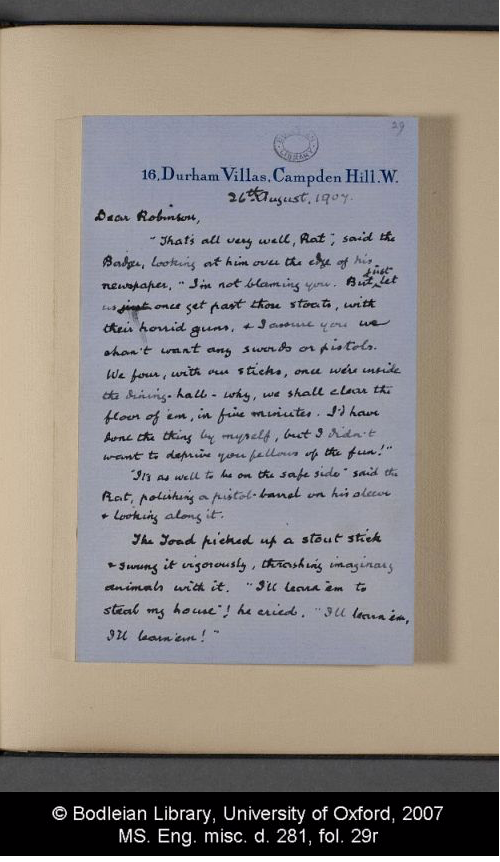 29
16, Durham Villas, Campden Hill. W.
26th August, 1907.
Dear Robinson,
"That's all very well, Rat", said the
Badger, looking at him over the edge of his
newspaper. "I'm not blaming you. But just let
us just once get past those stoats, with
their horrid guns, & I assure you we
shan't want any swords or pistols.
We four, with our sticks, once we're inside
the dining-hall - why, we shall clear the
floor of 'em, in five minutes. I'd have
done the thing by myself, but I didn't
want to deprive you fellows of the fun!"
"It's as well to be on the safe side" said the
Rat, polishing a pistol-barrel on his sleeve
& looking along it.
The Toad picked up a stout stick
& swung it vigorously, thrashing imaginary
animals with it. "I'll learn 'em to
steal my house"! he cried. "I'll learn 'em,
I'll learn 'em!"
© Bodleian Library, University of Oxford, 2007
MS. Eng. misc. d. 281, fol. 29r